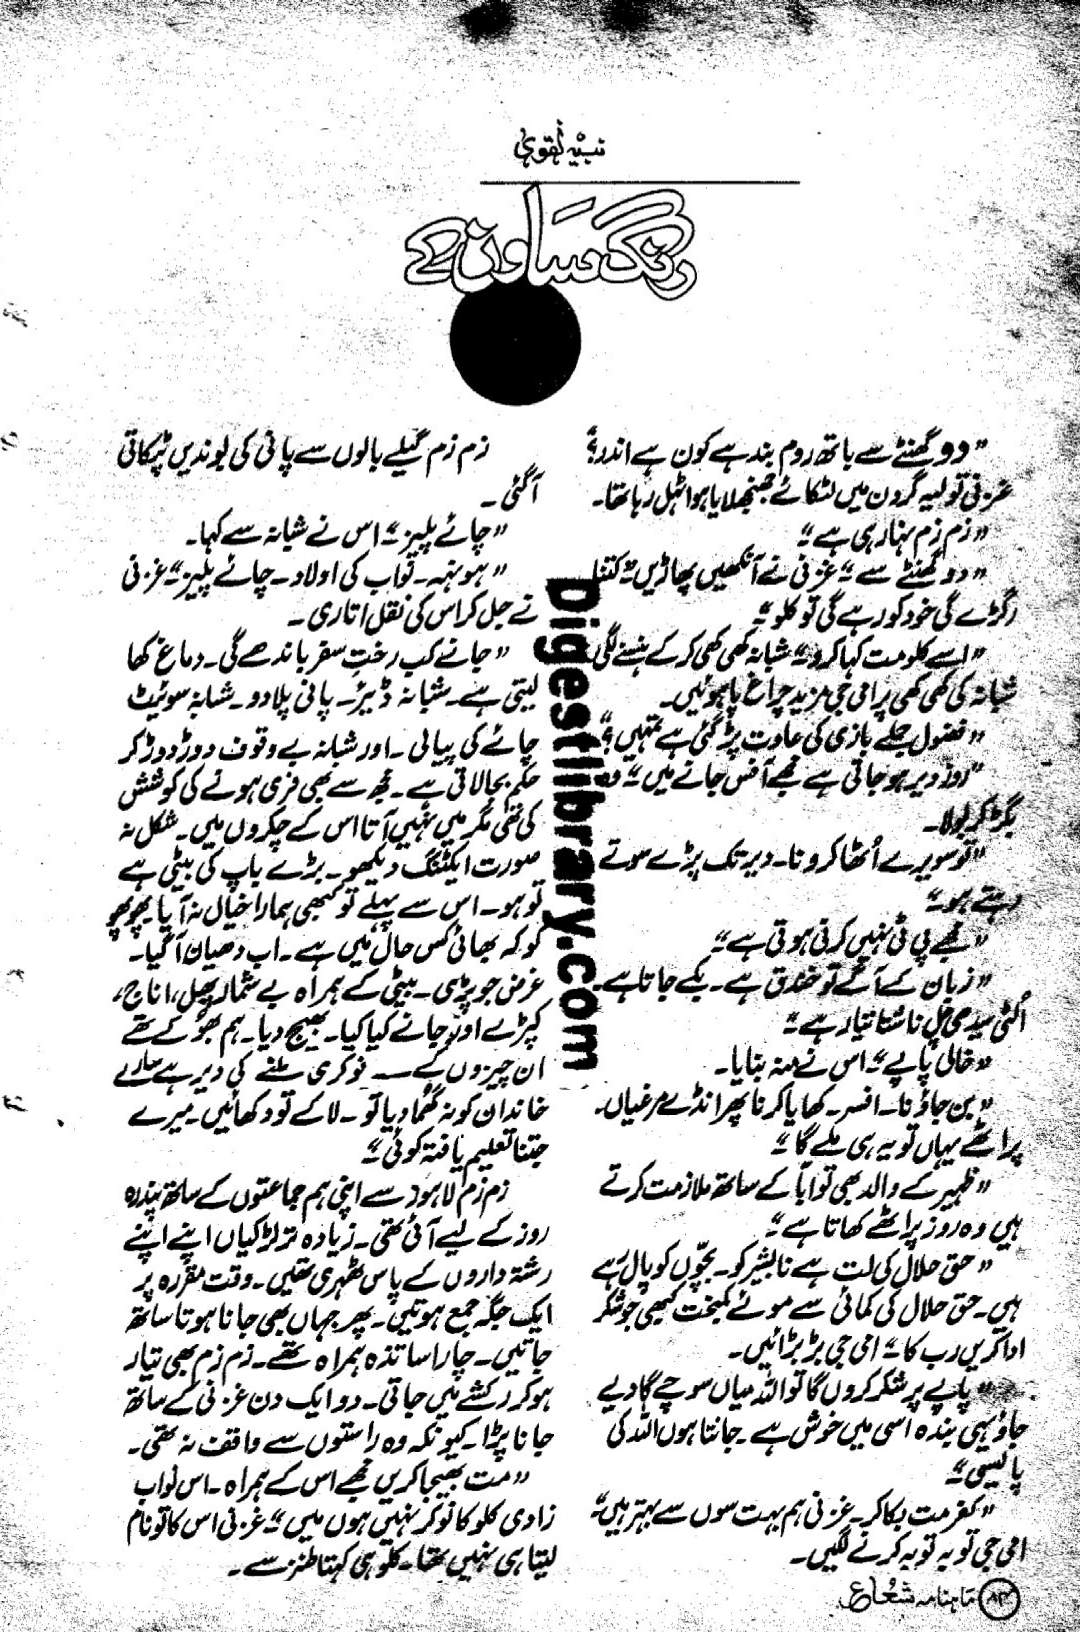 نبیہ نقوی
رنگ ساون کے
"دو گھنٹے سے باتھ روم بند ہے کون ہے اندر؟"
عزنی تولیہ گردن میں لٹکائے جھنجھلایا ہوا ٹہل رہا تھا۔
"زم زم نہا رہی ہے۔"
"دو گھنٹے سے۔" عزنی نے آنکھیں پھاڑیں "کتنا
رگڑے گی خود کو رہے گی تو کلو۔"
"اسے کلو مت کہا کرو۔" شبانہ کھی کھی کر کے ہنسنے لگی
شبانہ کی کھی کھی پر امی جی مزید چراغ پا ہوئیں۔
"فضول جملے بازی کی عادت پڑ گئی ہے تمہیں؟"
"روز دیر ہو جاتی ہے مجھے آفس جانے میں۔" وہ
بگڑ کر بولا۔
"تو سویرے اُٹھا کرو نا۔ دیر تک پڑے سوتے
رہتے ہو۔"
"مجھے پی ٹی نہیں کرنی ہوتی ہے۔"
"زبان کے آگے تو خندق ہے۔ بکے جاتا ہے۔
اُلٹی سیدھی چل ناشتا تیار ہے۔"
"خالی پاپے۔" اس نے منہ بنایا۔
"بن جاؤ نا۔ افسر۔ کھایا کرنا پھر انڈے مرغیاں۔
پراٹھے یہاں تو یہ ہی ملے گا۔"
"ظہیر کے والد بھی تو ابا کے ساتھ ملازمت کرتے
ہیں وہ روز پراٹھے کھاتا ہے۔"
"حق حلال کی لت ہے نا بشیر کو۔ بچّوں کو پال رہے
ہیں۔ حق حلال کی کمائی سے موئے کمبخت کبھی جو شکر
ادا کریں رب کا۔" امی جی بڑبڑائیں۔
"پاپے پر شکر کروں گا تو اللہ میاں سوچے گا دیے
جاؤ یہی بندہ اسی میں خوش ہے۔ جانتا ہوں اللہ کی
پالیسی۔"
"کفر مت بکا کر۔ عزنی ہم بہت سوں سے بہتر ہیں۔"
امی جی توبہ توبہ کرنے لگیں۔
زم زم گیلے بالوں سے پانی کی بوندیں ٹپکاتی
آ گئی۔
"چائے پلیز۔" اس نے شبانہ سے کہا۔
"ہونہہ۔ نواب کی اولاد۔ چائے پلیز۔" عزنی
نے جل کر اس کی نقل اتاری۔
"جانے کب رختِ سفر باندھے گی۔ دماغ کھا
لیتی ہے۔ شبانہ ڈیئر۔ پانی پلا دو۔ شبانہ سوئیٹ
چائے کی پیالی۔ اور شبانہ بے وقوف دوڑ دوڑ کر
حکم بجا لاتی ہے۔ مجھ سے بھی فری ہونے کی کوشش
کی تھی مگر میں نہیں آتا اس کے چکروں میں۔ شکل نہ
صورت ایکٹنگ دیکھو۔ بڑے باپ کی بیٹی ہے
تو ہو۔ اس سے پہلے تو کبھی ہمارا خیال نہ آیا پھوپھو
کو کہ بھائی کس حال میں ہے۔ اب دھیان آ گیا۔
غرض جو پڑی۔ بیٹی کے ہمراہ بے شمار پھل، اناج،
کپڑے اور جانے کیا کیا۔ بھیج دیا۔ ہم بھوکے تھے
ان چیزوں کے۔ نوکری ملنے کی دیر ہے سارے
خاندان کو نہ گھما دیا تو۔ لا کے تو دکھائیں۔ میرے
جتنا تعلیم یافتہ کوئی۔"
زم زم لاہور سے اپنی ہم جماعتوں کے ساتھ پندرہ
روز کے لیے آئی تھی۔ زیادہ تر لڑکیاں اپنے اپنے
رشتہ داروں کے پاس ٹھہری تھیں۔ وقت مقررہ پر
ایک جگہ جمع ہوتیں۔ پھر جہاں بھی جانا ہوتا ساتھ
جاتیں۔ چار اساتذہ ہمراہ تھے۔ زم زم بھی تیار
ہو کر رکشے میں جاتی۔ دو ایک دن عزنی کے ساتھ
جانا پڑا۔ کیونکہ وہ راستوں سے واقف نہ تھی۔
"مت بھیجا کریں مجھے اس کے ہمراہ۔ اس نواب
زادی کلو کا نوکر نہیں ہوں میں۔" عزنی اس کا تو نام
لیتا ہی نہیں تھا۔ کلو ہی کہتا طنز سے۔
Digestlibrary.com
ماہنامہ شعاع